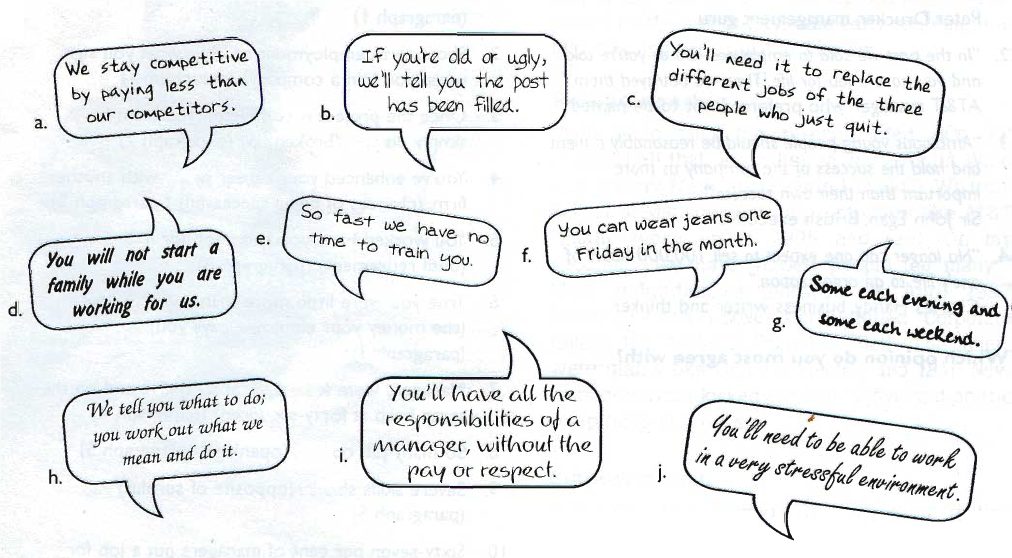 We stay competitive
by paying less than
our competitors.
a.
If you're old or ugly,
we'll tell you the post
has been filled.
b.
You'll need it to replace the
different jobs of the three
people who just quit.
c.
You will not start a
family while you are
working for us.
d.
e.
So fast we have no
time to train you.
You can wear jeans one
Friday in the month.
f.
Some each evening and
some each weekend.
g.
We tell you what to do;
you work out what we
mean and do it.
h.
You'll have all the
responsibilities of a
manager, without the
pay or respect.
i.
You'll need to be able to work
in a very stressful environment.
j.